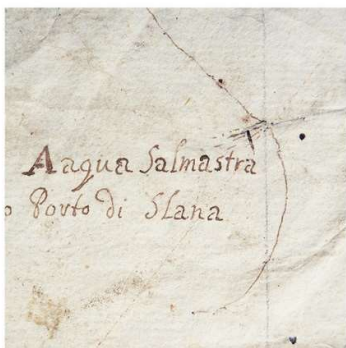 A aqua Salmastra
o Porto di Slana